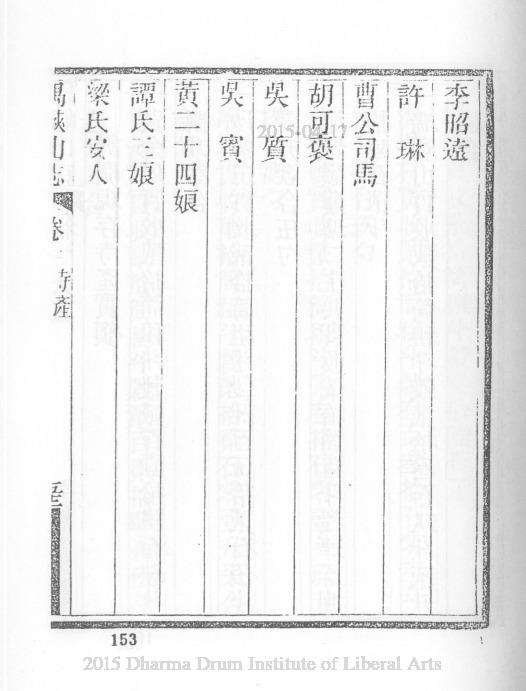 李昭遠
許琳
曹公司馬
胡可褒
吳質
吳寶
黃二十四娘
譚氏三娘
梁氏安人
禺峽山志 卷 産
153
2015-04-17
2015 Dharma Drum Institute of Liberal Arts